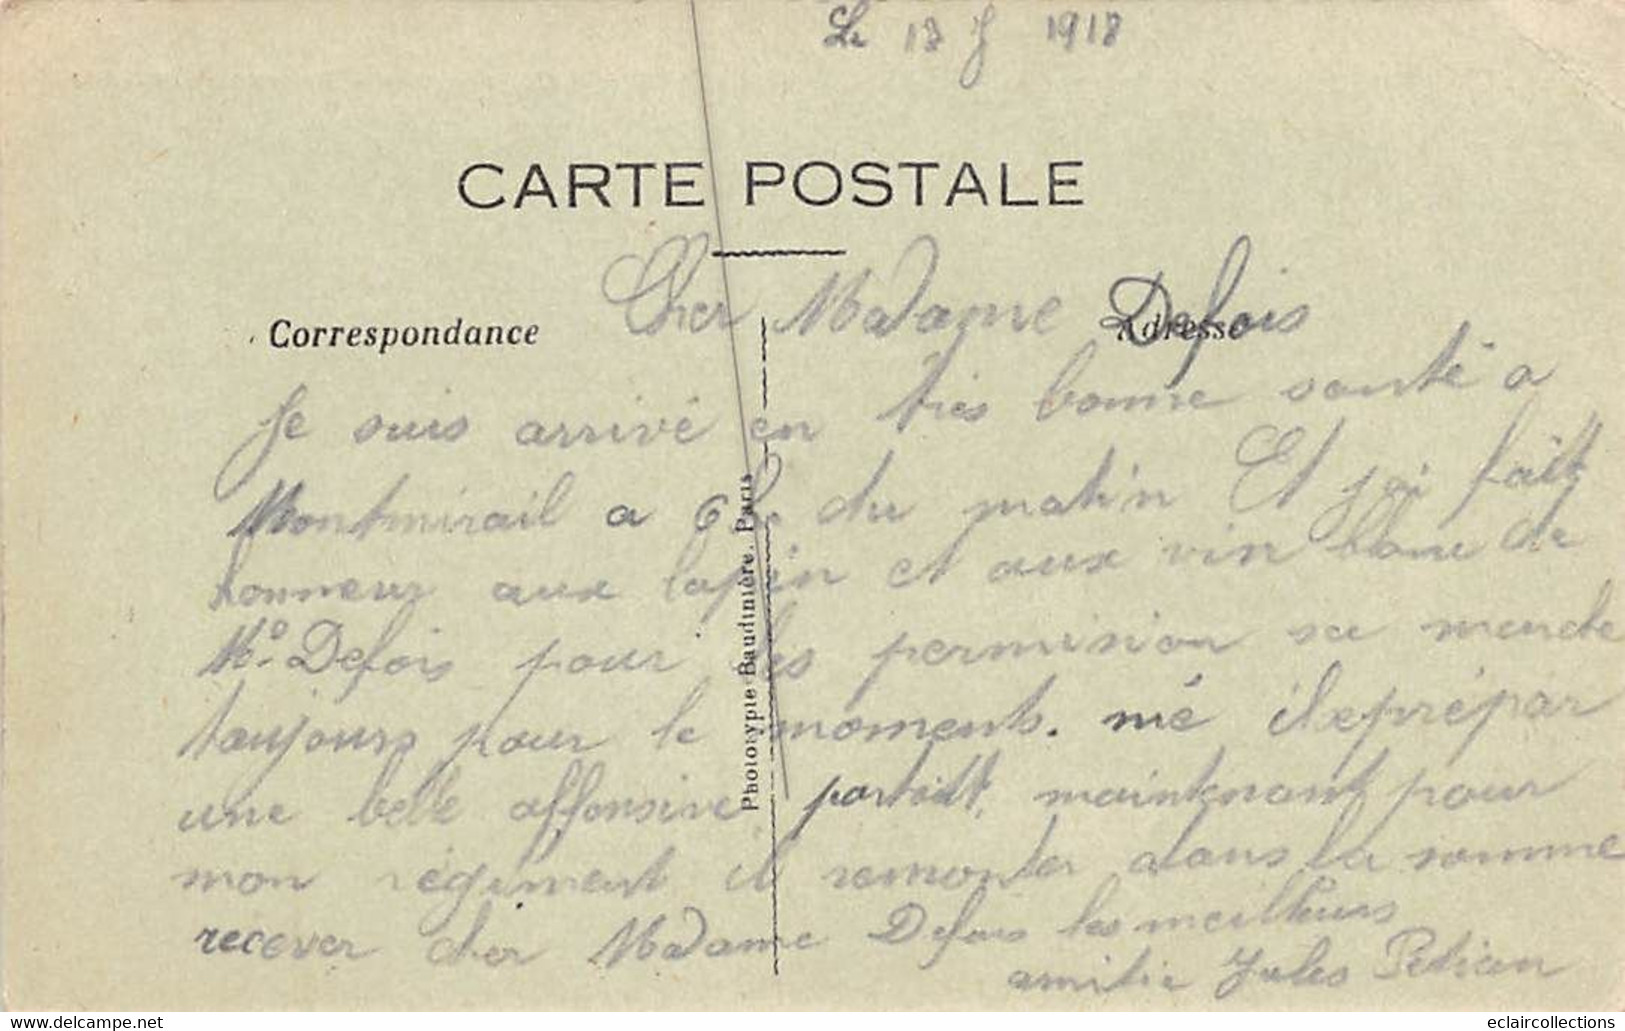 Le 18 J 1918
CARTE POSTALE
Correspondance
Adresse
Cher Madame Defois
Je suis arrivé en tres bonne santé a
Montmirail a 6 h du matin Et j ai fait
honneur aux lapin et aux vin blanc de
Mo. Defois pour les permision sa marche
toujours pour le moments. mé il eprépar
une belle affonsive partait maintenant pour
mon régiment il remonter dans la somme
recever cher Madame Defois les meilleurs
amitie Jules Petion
Phototypie Baudinière, Paris
www.delcampe.net
eclaircollections